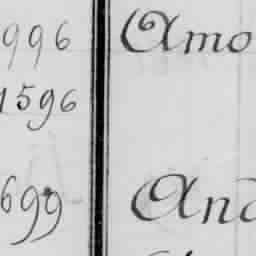 996 Amo
1596
699 And